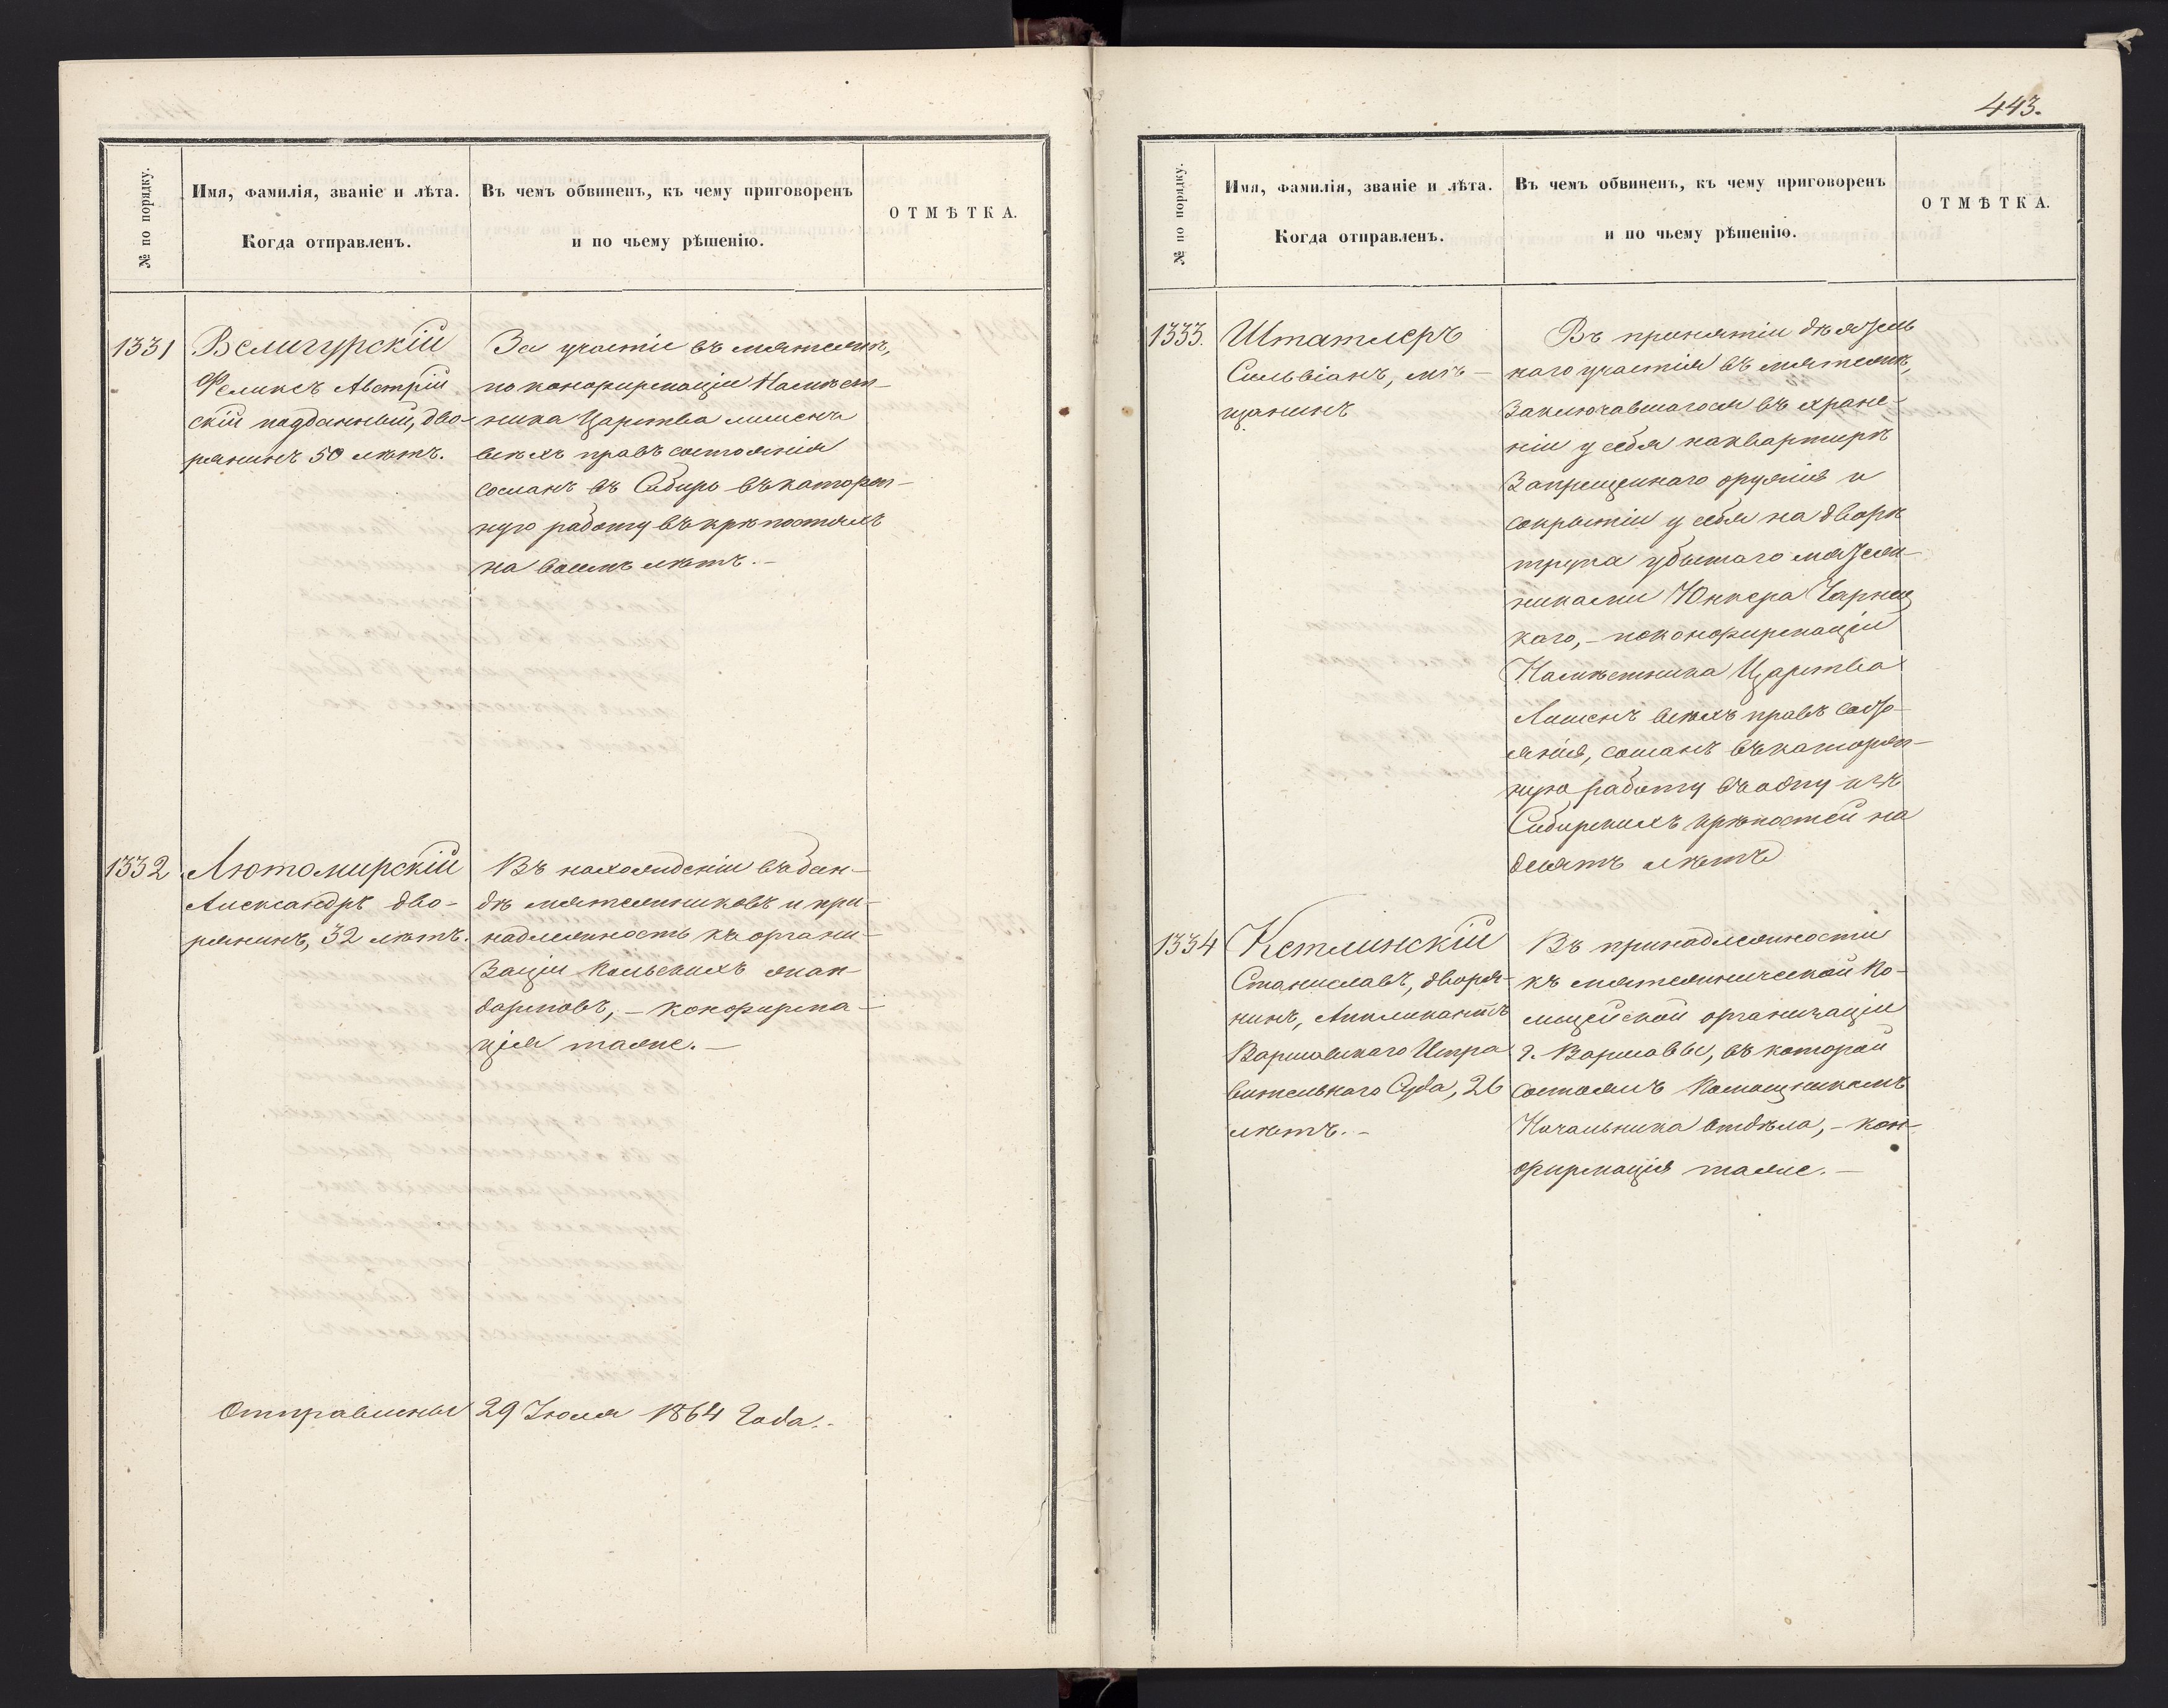 № по порядку.
Имя, фамилія, званіе и лѣта.
Когда отправленъ.
Въ чемъ обвиненъ, къ чему приговоренъ
и по чьему рѣшенію.
ОТМѢТКА.
1331
Велигурскій
Феликсъ Австрій
скій подданный, дво-
рянинъ 50 лѣтъ.
За участіе въ мятежѣ,
по конфирмаціи Намѣст-
ника Царства лишенъ
всѣхъ правъ состоянія
сосланъ въ Сибирь въ каторж-
ную работу въ крѣпостяхъ
на восемь лѣтъ.-
1332
Лютомирскій
Александръ дво-
рянинъ, 32 лѣтъ.
Въ нахожденіи въ бан-
дѣ мятежниковъ и при-
надлежность къ органи-
заціи Польскихъ жан-
дармовъ, - конфирма-
ція таже. -
Отправлены 29 Іюля 1864 года.-
443.
№ по порядку.
Имя, фамилія, званіе и лѣта.
Когда отправленъ.
Въ чемъ обвиненъ, къ чему приговоренъ
и по чьему рѣшенію.
ОТМѢТКА.
1333.
Штатлеръ
Сильвіанъ, мѣ-
щанинъ
Въ принятіи дѣятель
наго участія въ мятежѣ,
заключавшагося въ хране-
ніи у себя на квартирѣ
запрещеннаго оружія и
сокрытіи у себя на дворѣ
трупа убитаго мятеж-
никами Юнкера Чарнец
каго, - по конфирмаціи
Намѣстника Царства
Лишенъ всѣхъ правъ состо-
янія, сосланъ въ каторж-
ную работу въ одну изъ
Сибирскихъ крѣпостей на
десять лѣтъ
1334
Кетлинскій
Станиславъ, дворя-
нинъ, Аппликантъ
Варшавскаго Испра
вительнаго Суда, 26
лѣтъ.-
Въ принадлежности
къ мятежнической По-
лицейской организаціи
г. Варшавы, въ которой
состоялъ Помощникомъ
Начальника отдѣла, - кон-
фирмація таже. -